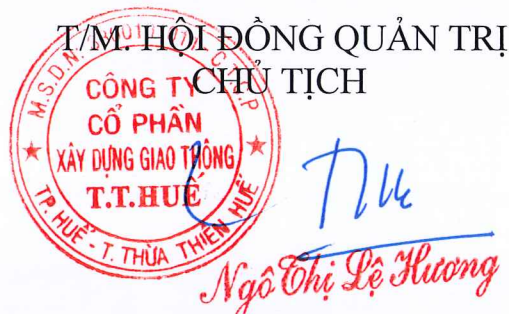 T/M. HỘI ĐỒNG QUẢN TRỊ
CHỦ TỊCH
CÔNG TY
CỔ PHẦN
XÂY DỰNG GIAO THÔNG
T.T.HUẾ
TP. HUẾ - T. THỪA THIÊN HUẾ
Ngô Thị Lệ Hương